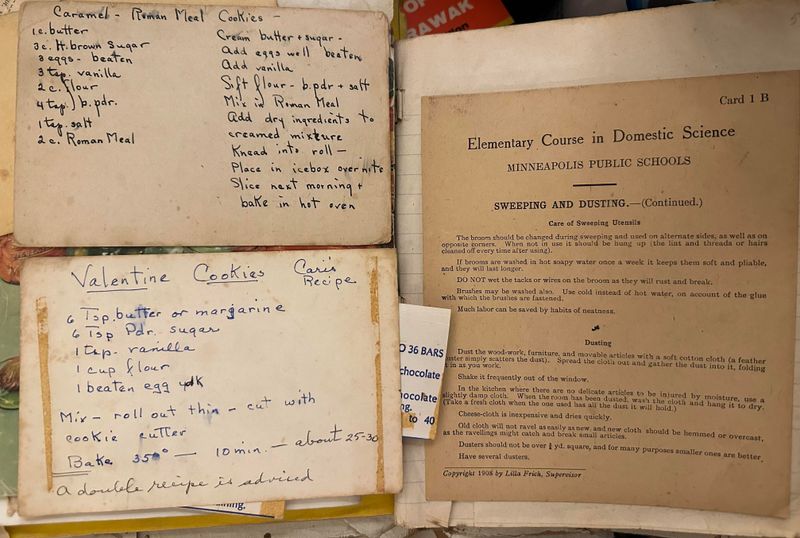 Caramel - Roman Meal Cookies -
1 c. butter
3 c. H. brown Sugar
3 eggs - beaten
3 tsp. vanilla
2 c. flour
4 tsp. b.pdr.
1 tsp. salt
2 c. Roman Meal
Cream butter + sugar -
Add eggs well beaten
Add vanilla
Sift flour - b.pdr + salt
Mix in Roman Meal
Add dry ingredients to
creamed mixture
Knead into roll -
Place in icebox over nite
Slice next morning +
bake in hot oven
Valentine Cookies
Cari's
Recipe
6 Tsp butter or margarine
6 Tsp Pdr. sugar
1 tsp. vanilla
1 cup flour
1 beaten egg yolk
Mix - roll out thin - cut with
cookie cutter
Bake 350° - 10 min. - about 25-30
A double recipe is adviced
OP
RAWAK
O 36 BARS
chocolate
hocolate
ng.
to 40
ing.
Card 1 B
Elementary Course in Domestic Science
MINNEAPOLIS PUBLIC SCHOOLS
SWEEPING AND DUSTING.—(Continued.)
Care of Sweeping Utensils
The broom should be changed during sweeping and used on alternate sides, as well as on
opposite corners. When not in use it should be hung up (the lint and threads or hairs
cleaned off every time after using).
If brooms are washed in hot soapy water once a week it keeps them soft and pliable,
and they will last longer.
DO NOT wet the tacks or wires on the broom as they will rust and break.
Brushes may be washed also. Use cold instead of hot water, on account of the glue
with which the brushes are fastened.
Much labor can be saved by habits of neatness.
Dusting
Dust the wood-work, furniture, and movable articles with a soft cotton cloth (a feather
duster simply scatters the dust). Spread the cloth out and gather the dust into it, folding
it in as you work.
Shake it frequently out of the window.
In the kitchen where there are no delicate articles to be injured by moisture, use a
slightly damp cloth. When the room has been dusted, wash the cloth and hang it to dry.
(Take a fresh cloth when the one used has all the dust it will hold.)
Cheese-cloth is inexpensive and dries quickly.
Old cloth will not ravel as easily as new, and new cloth should be hemmed or overcast,
as the ravellings might catch and break small articles.
Dusters should not be over ¾ yd. square, and for many purposes smaller ones are better.
Have several dusters.
Copyright 1908 by Lilla Frich, Supervisor